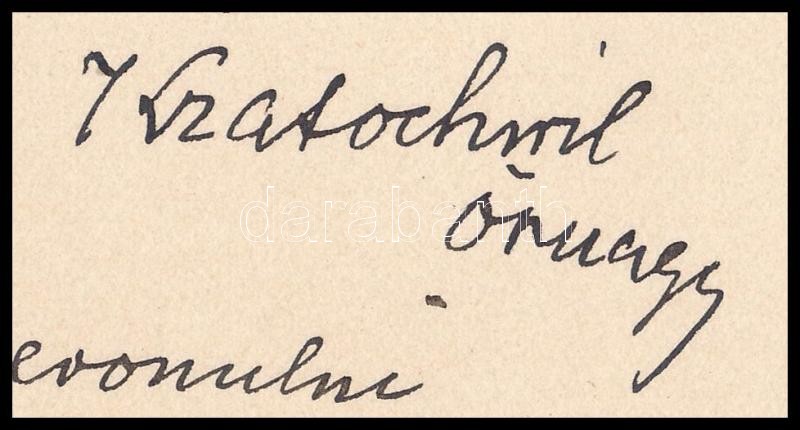 Kratochwil
őrnagy
evonulni
darabanth